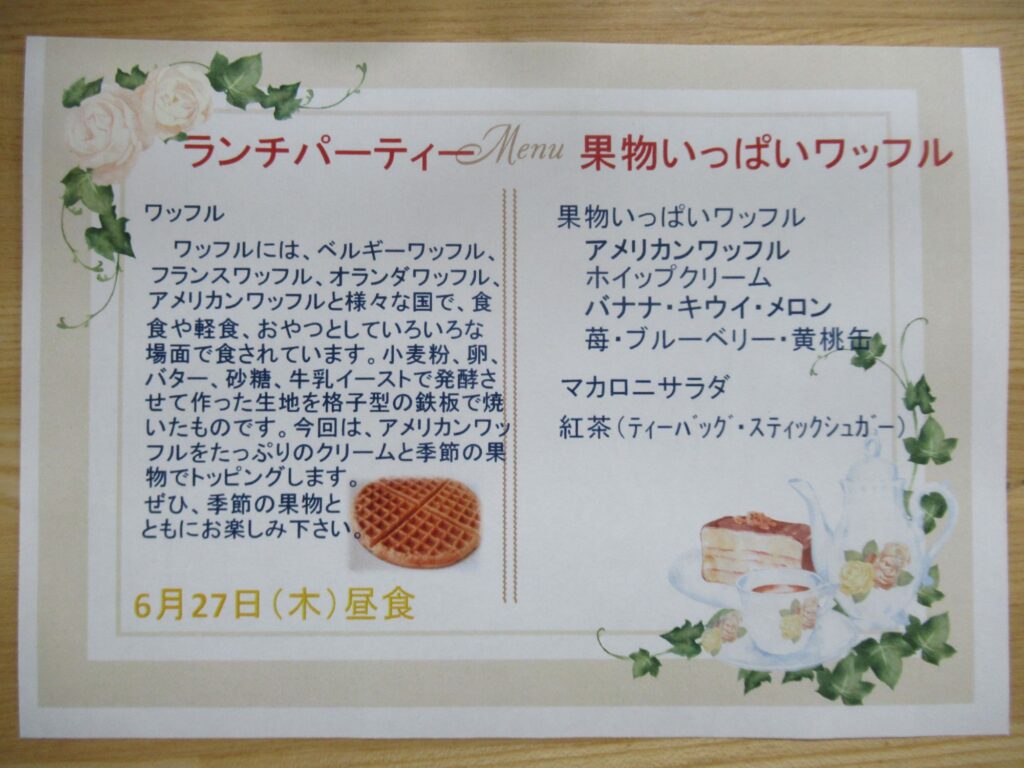 ランチパーティー Menu 果物いっぱいワッフル
ワッフル
ワッフルには、ベルギーワッフル、
フランスワッフル、オランダワッフル、
アメリカンワッフルと様々な国で、食
食や軽食、おやつとしていろいろな
場面で食されています。小麦粉、卵、
バター、砂糖、牛乳イーストで発酵さ
せて作った生地を格子型の鉄板で焼
いたものです。今回は、アメリカンワッ
フルをたっぷりのクリームと季節の果
物でトッピングします。
ぜひ、季節の果物と
ともにお楽しみ下さい。
6月27日(木)昼食
果物いっぱいワッフル
アメリカンワッフル
ホイップクリーム
バナナ・キウイ・メロン
苺・ブルーベリー・黄桃缶
マカロニサラダ
紅茶(ティーバッグ・スティックシュガー)